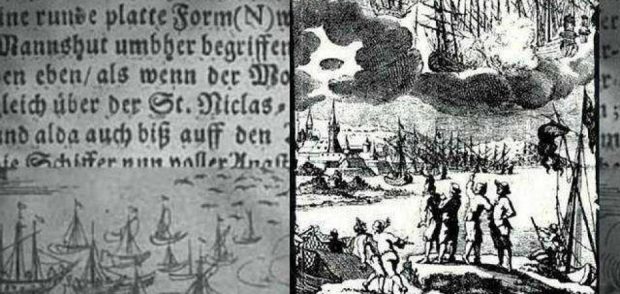 ine runde platte Form(N)w
Mannshut umbher begriffen
en eben/ als wenn der Mo
leich über der St. Niclas,
nd alda auch biß auff den
ie Schiffer nun voller Angst